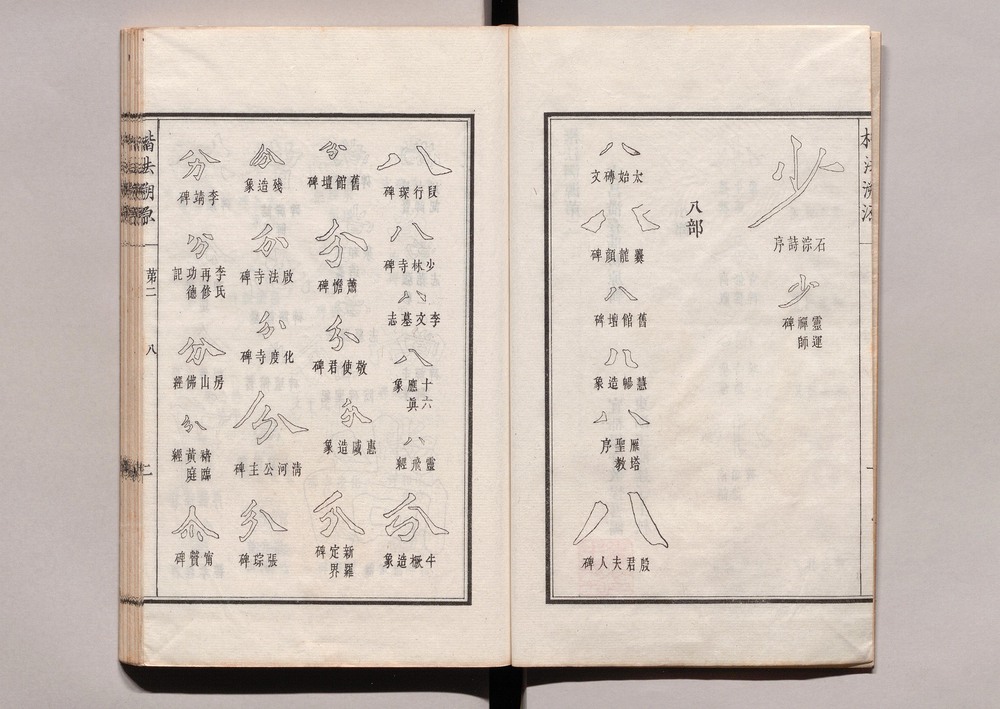 少
石淙詩序
少
靈運禪師碑
八部
八
太始磚文
八
爨龍顏碑
八
舊館壇碑
八
慧暢造象
八
雁塔聖教序
八
殷君夫人碑
八
段行琛碑
八
少林寺碑
八
李文墓志
八
十六應眞象
八
靈飛經
分
牛橛造象
分
舊館壇碑
分
蕭憺碑
分
敬使君碑
分
惠感造象
分
新羅定界碑
分
殘造象
分
啟法寺碑
分
化度寺碑
分
清河公主碑
分
張琮碑
分
李靖碑
分
李氏再修功德記
分
房山佛經
分
褚臨黃庭經
尒
甯贙碑
楷法溯源
第二
八